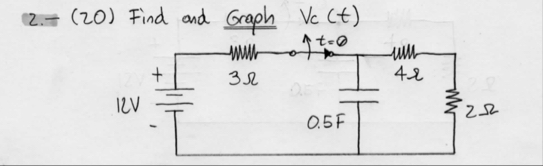 2.- (20) Find and Graph Vc (t)
t=0
3Ω
4Ω
+
12V
-
0.5F
2Ω